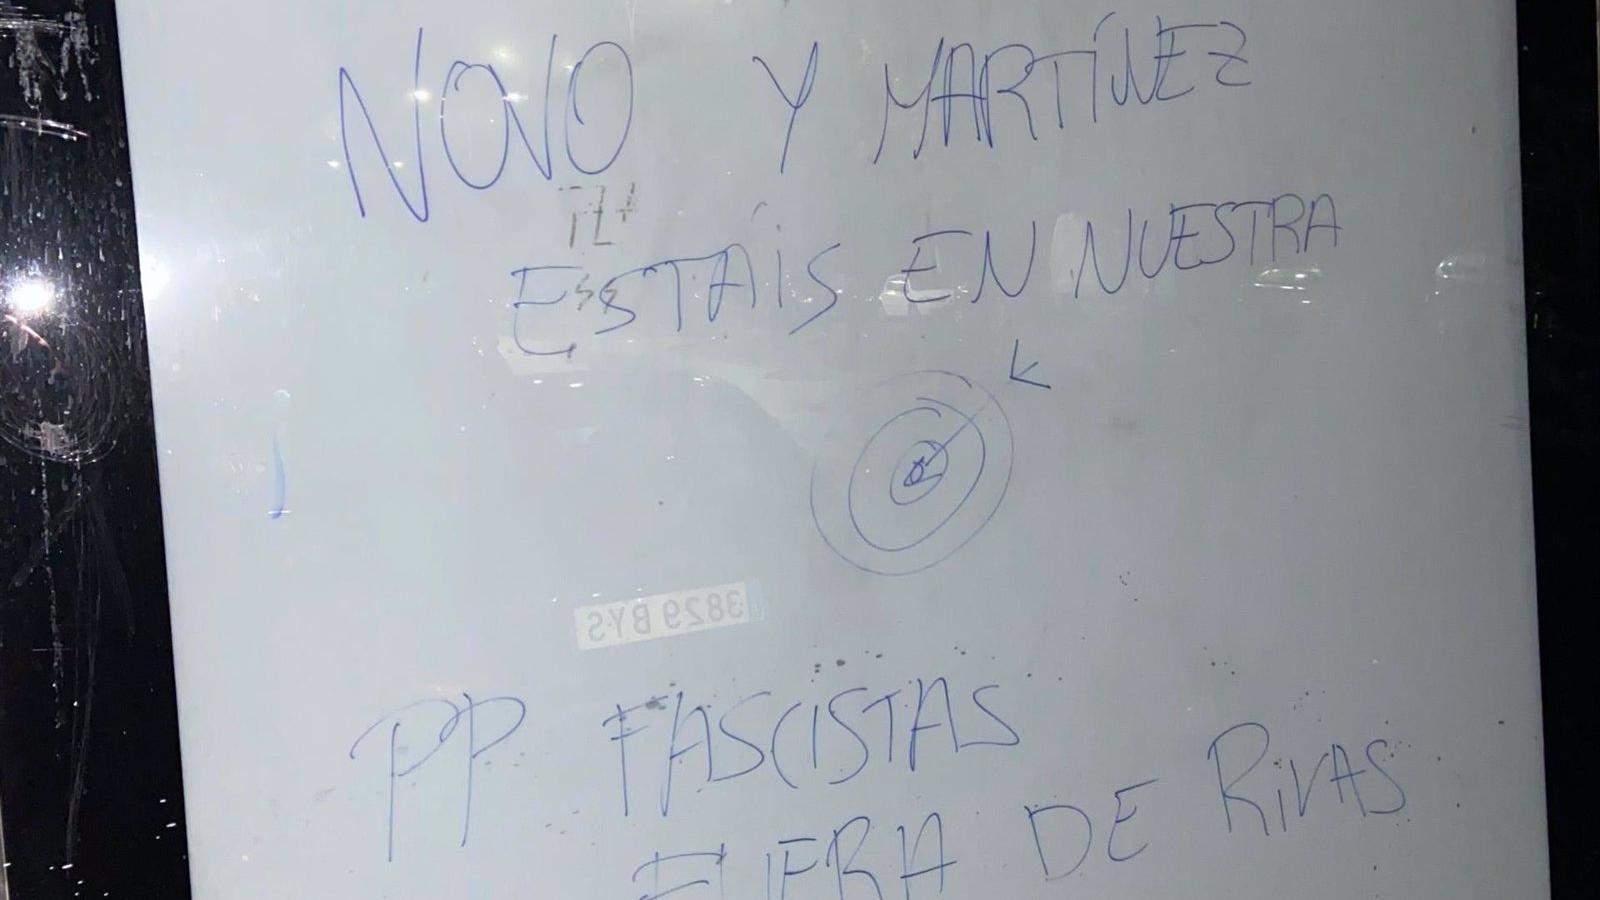 NOVO Y MARTÍNEZ
ESTÁIS EN NUESTRA
3829 BYS
PP FASCISTAS
FUERA DE RIVAS